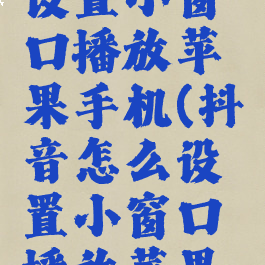 设置小窗
口播放苹
果手机(抖
音怎么设
置小窗口
播放苹果